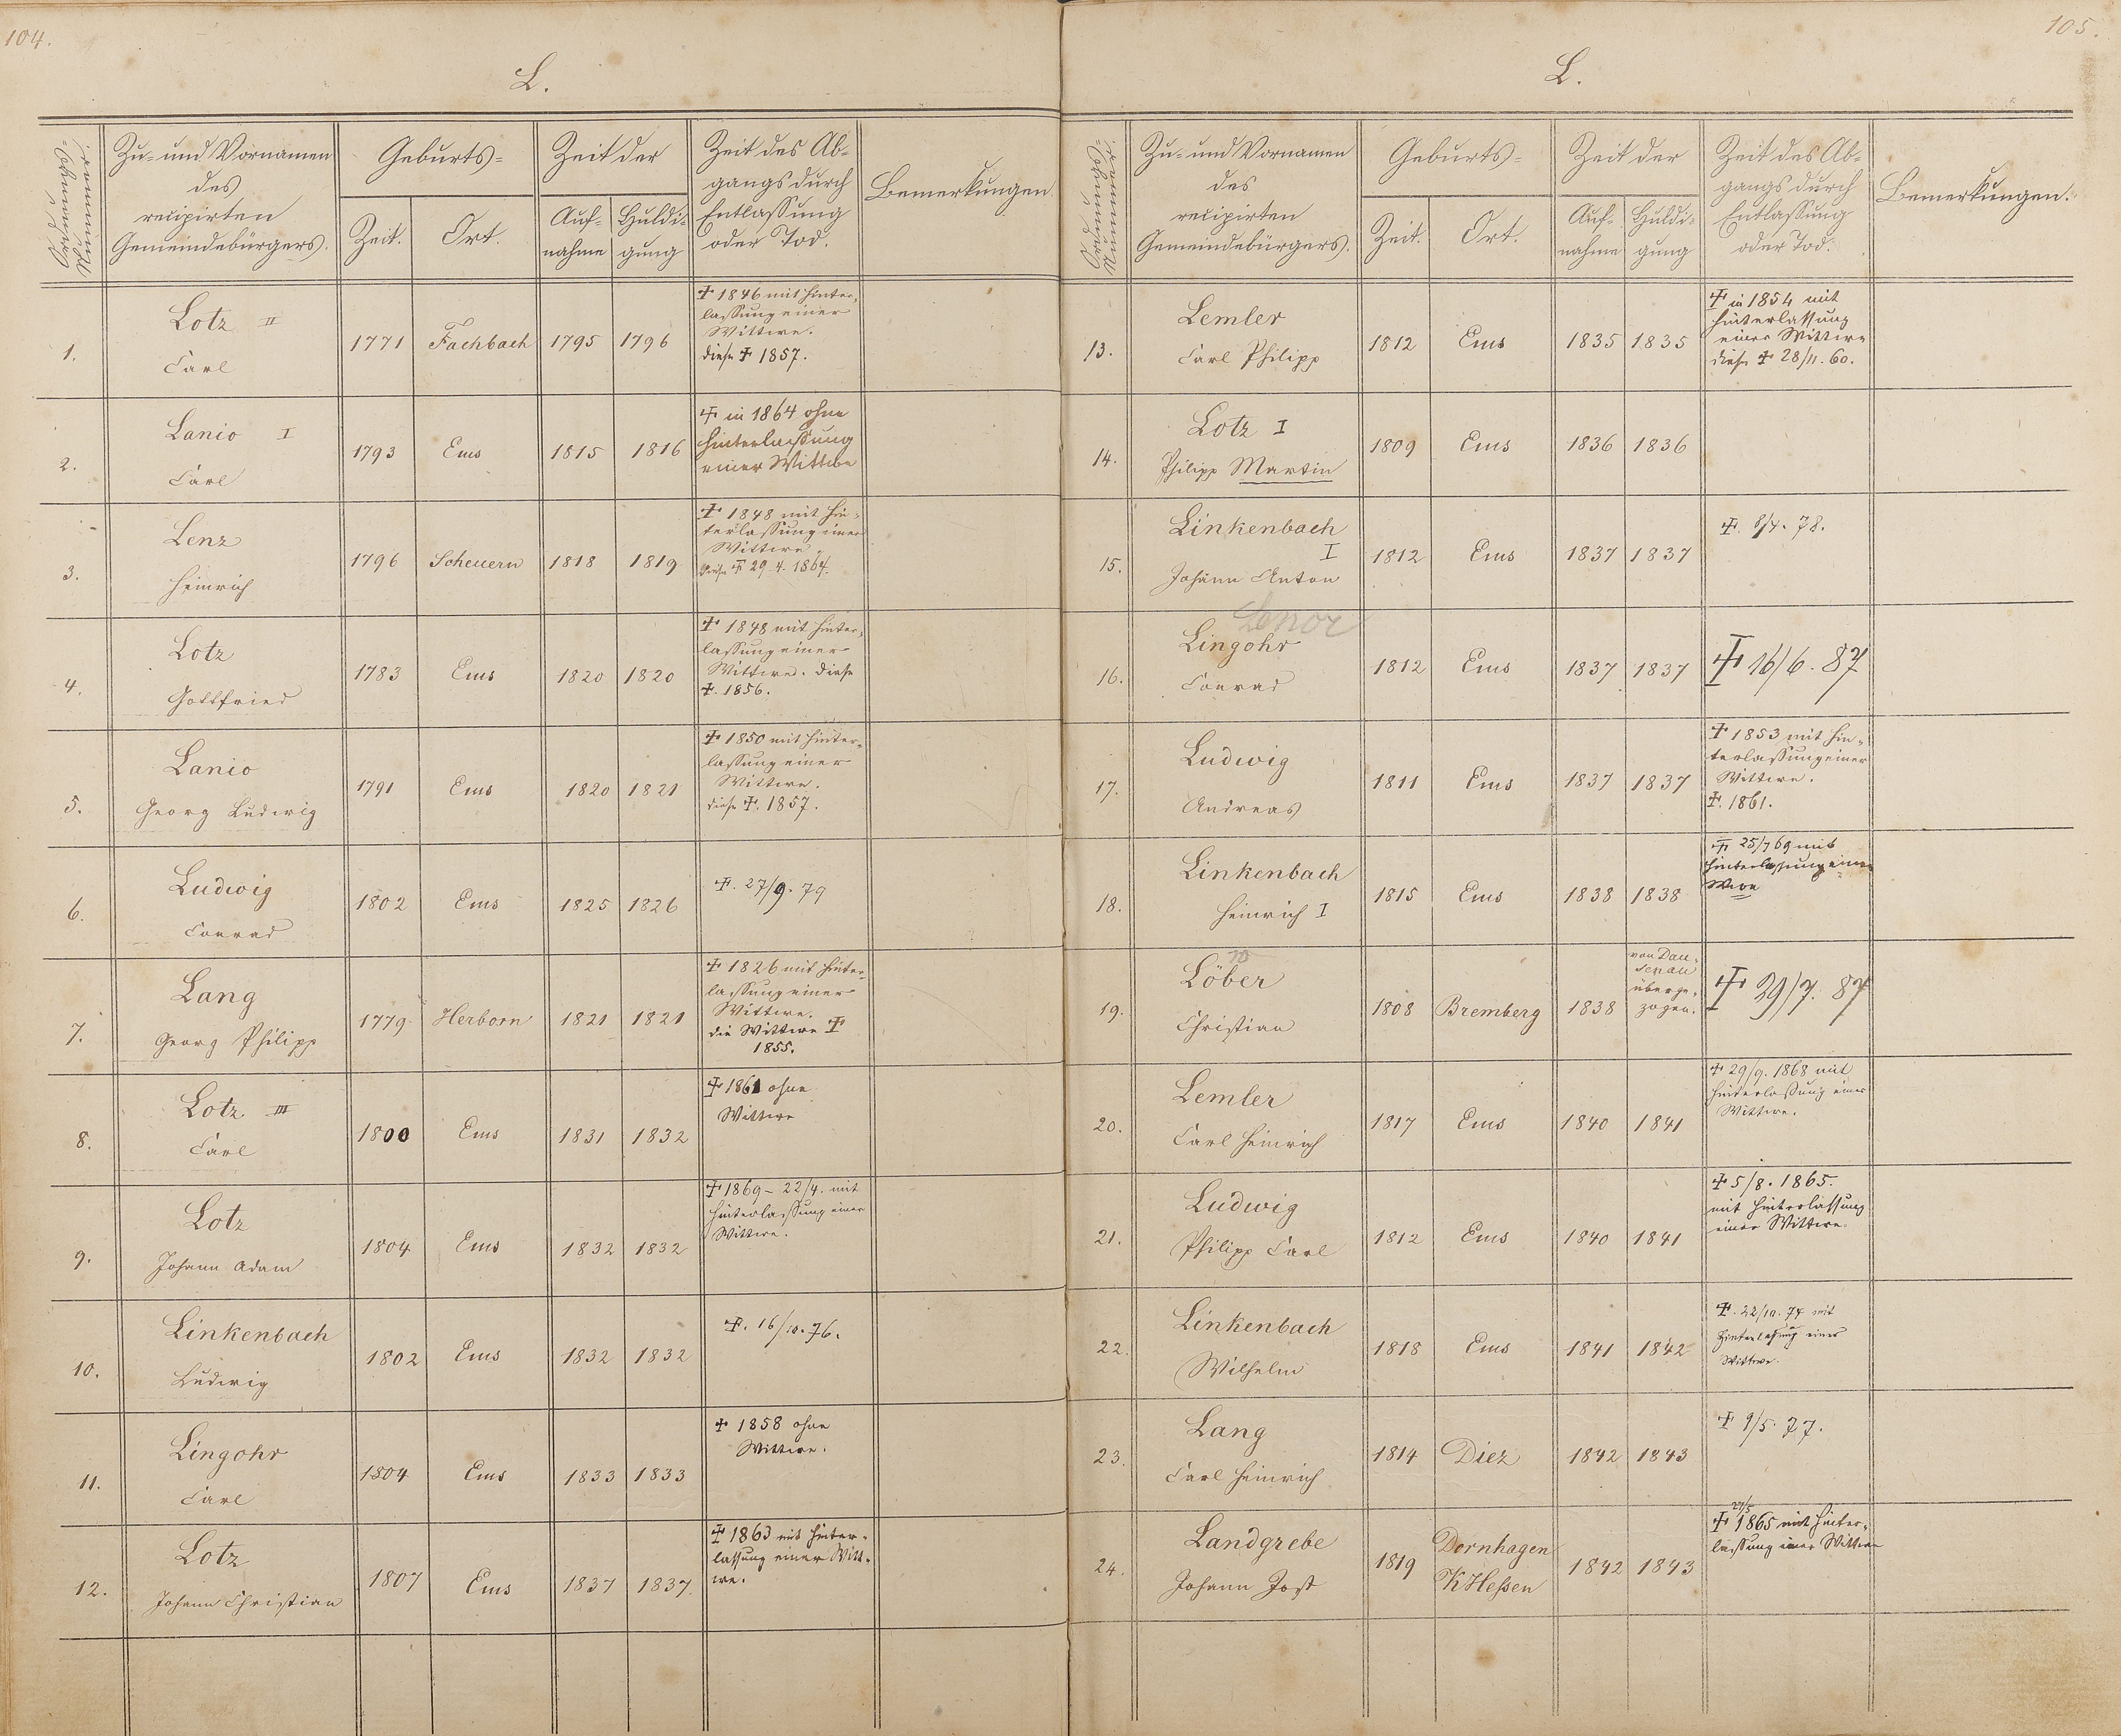 104.
L.
Ordnungs-
Nummer.
Zu- und Vornamen
des
recipirten
Gemeindebürgers.
Geburts-
Zeit.
Ort.
Zeit der
Auf-
nahme
Huldi-
gung
Zeit des Ab-
gangs durch
Entlassung
oder Tod.
Bemerkungen.
1.
Lotz II
Carl
1771
Fachbach
1795
1796
† 1846 mit Hinter-
lassung einer
Wittwe.
diese † 1857.
2.
Lanio I
Carl
1793
Ems
1815
1816
† in 1864 ohne
Hinterlassung
einer Wittwe
3.
Lenz
Heinrich
1796
Scheuern
1818
1819
† 1848 mit Hin-
terlassung einer
Wittwe
diese † 29.4.1864.
4.
Lotz
Gottfried
1783
Ems
1820
1820
† 1848 mit Hinter-
lassung einer
Wittwe. diese
†. 1856.
5.
Lanio
Georg Ludwig
1791
Ems
1820
1821
† 1850 mit Hinter-
lassung einer
Wittwe.
diese †. 1857.
6.
Ludwig
Conrad
1802
Ems
1825
1826
†. 27/9. 79
7.
Lang
Georg Philipp
1779
Herborn
1821
1821
† 1826 mit Hinter-
lassung einer
Wittwe.
die Wittwe †
1855.
8.
Lotz III
Carl
1800
Ems
1831
1832
† 1861 ohne
Wittwe
9.
Lotz
Johann Adam
1804
Ems
1832
1832
† 1869 - 22/4. mit
Hinterlassung einer
Wittwe.
10.
Linkenbach
Ludwig
1802
Ems
1832
1832
†. 16/10. 76.
11.
Lingohr
Carl
1804
Ems
1833
1833
† 1858 ohne
Wittwe.
12.
Lotz
Johann Christian
1807
Ems
1837
1837.
† 1863 mit Hinter-
lassung einer Witt-
we.
105.
L.
Ordnungs-
Nummer.
Zu- und Vornamen
des
recipirten
Gemeindebürgers.
Geburts-
Zeit.
Ort.
Zeit der
Auf-
nahme
Huldi-
gung
Zeit des Ab-
gangs durch
Entlassung
oder Tod.
Bemerkungen.
13.
Lemler
Carl Philipp
1812
Ems
1835
1835
† in 1854 mit
Hinterlassung
einer Wittwe
diese † 28/11. 60.
14.
Lotz I
Philipp Martin
1809
Ems
1836
1836
15.
Linkenbach
I
Johann Anton
1812
Ems
1837
1837
†. 8/4. 78.
16.
Lingohr
Conrad
1812
Ems
1837
1837
† 16/6. 87
17.
Ludwig
Andreas
1811
Ems
1837
1837
† 1853 mit Hin-
terlassung einer
Wittwe.
†. 1861.
18.
Linkenbach
Heinrich I
1815
Ems
1838
1838
† 25/7 69 mit
Hinterlassung einer
Wwe
19.
Löber
Christian
1808
Bremberg
1838
von Dau-
senau
überge-
zogen.
† 29/7. 87
20.
Lemler
Carl Heinrich
1817
Ems
1840
1841
† 29/9. 1868 mit
Hinterlassung einer
Wittwe.
21.
Ludwig
Philipp Carl
1812
Ems
1840
1841
† 5/8. 1865.
mit Hinterlassung
einer Wittwe.
22.
Linkenbach
Wilhelm
1818
Ems
1841
1842
†. 22/10. 74 mit
Hinterlassung einer
Wittwe.
23.
Lang
Carl Heinrich
1814
Diez
1842
1843
† 9/5. 77.
24.
Landgrebe
Johann Jost
1819
Dornhagen
K Hessen
1842
1843
† 1865 mit Hinter-
lassung einer Wittwe